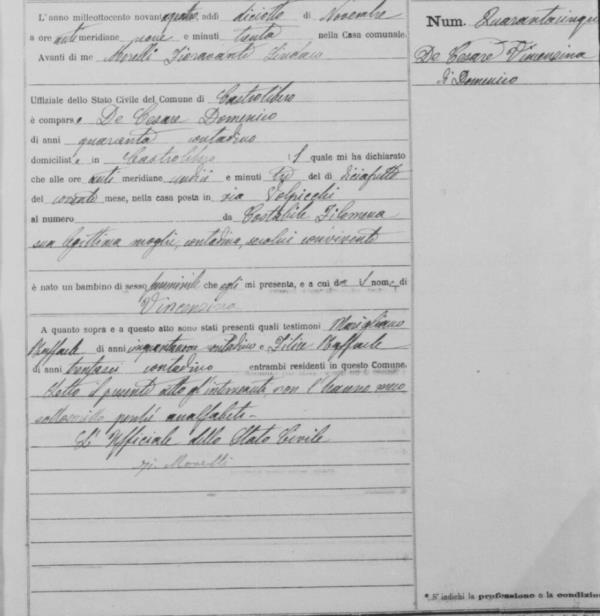 L'anno millottocento novantaquattro, addì diciotto di Novembre
a ore anti meridiane nove e minuti trenta nella Casa comunale.
Avanti di me Morelli Fioravante Sindaco
Uffiziale dello Stato Civile del Comune di Castrolibero
è comparso De Cesare Domenico
di anni quaranta contadino
domiciliato in Castrolibero il quale mi ha dichiarato
che alle ore anti meridiane undici e minuti del dì diciasette
del corrente mese, nella casa posta in via Volpicchi
al numero da Costabile Filomena
sua legittima moglie, contadina, seco lui convivente
è nato un bambino di sesso femminile che egli mi presenta, e a cui da il nome di
Vincenzina
A quanto sopra e a questo atto sono stati presenti quali testimoni
Raffaele di anni contadino e Raffaele
di anni trentasei contadino entrambi residenti in questo Comune.
Letto il presente atto agl'intervenuti non l'hanno meco
sottoscritto perché analfabeti.
L'Ufficiale dello Stato Civile
Morelli
Num. Quarantacinque
De Cesare Vincenzina
di Domenico
* S'indichi la professione o la condizione